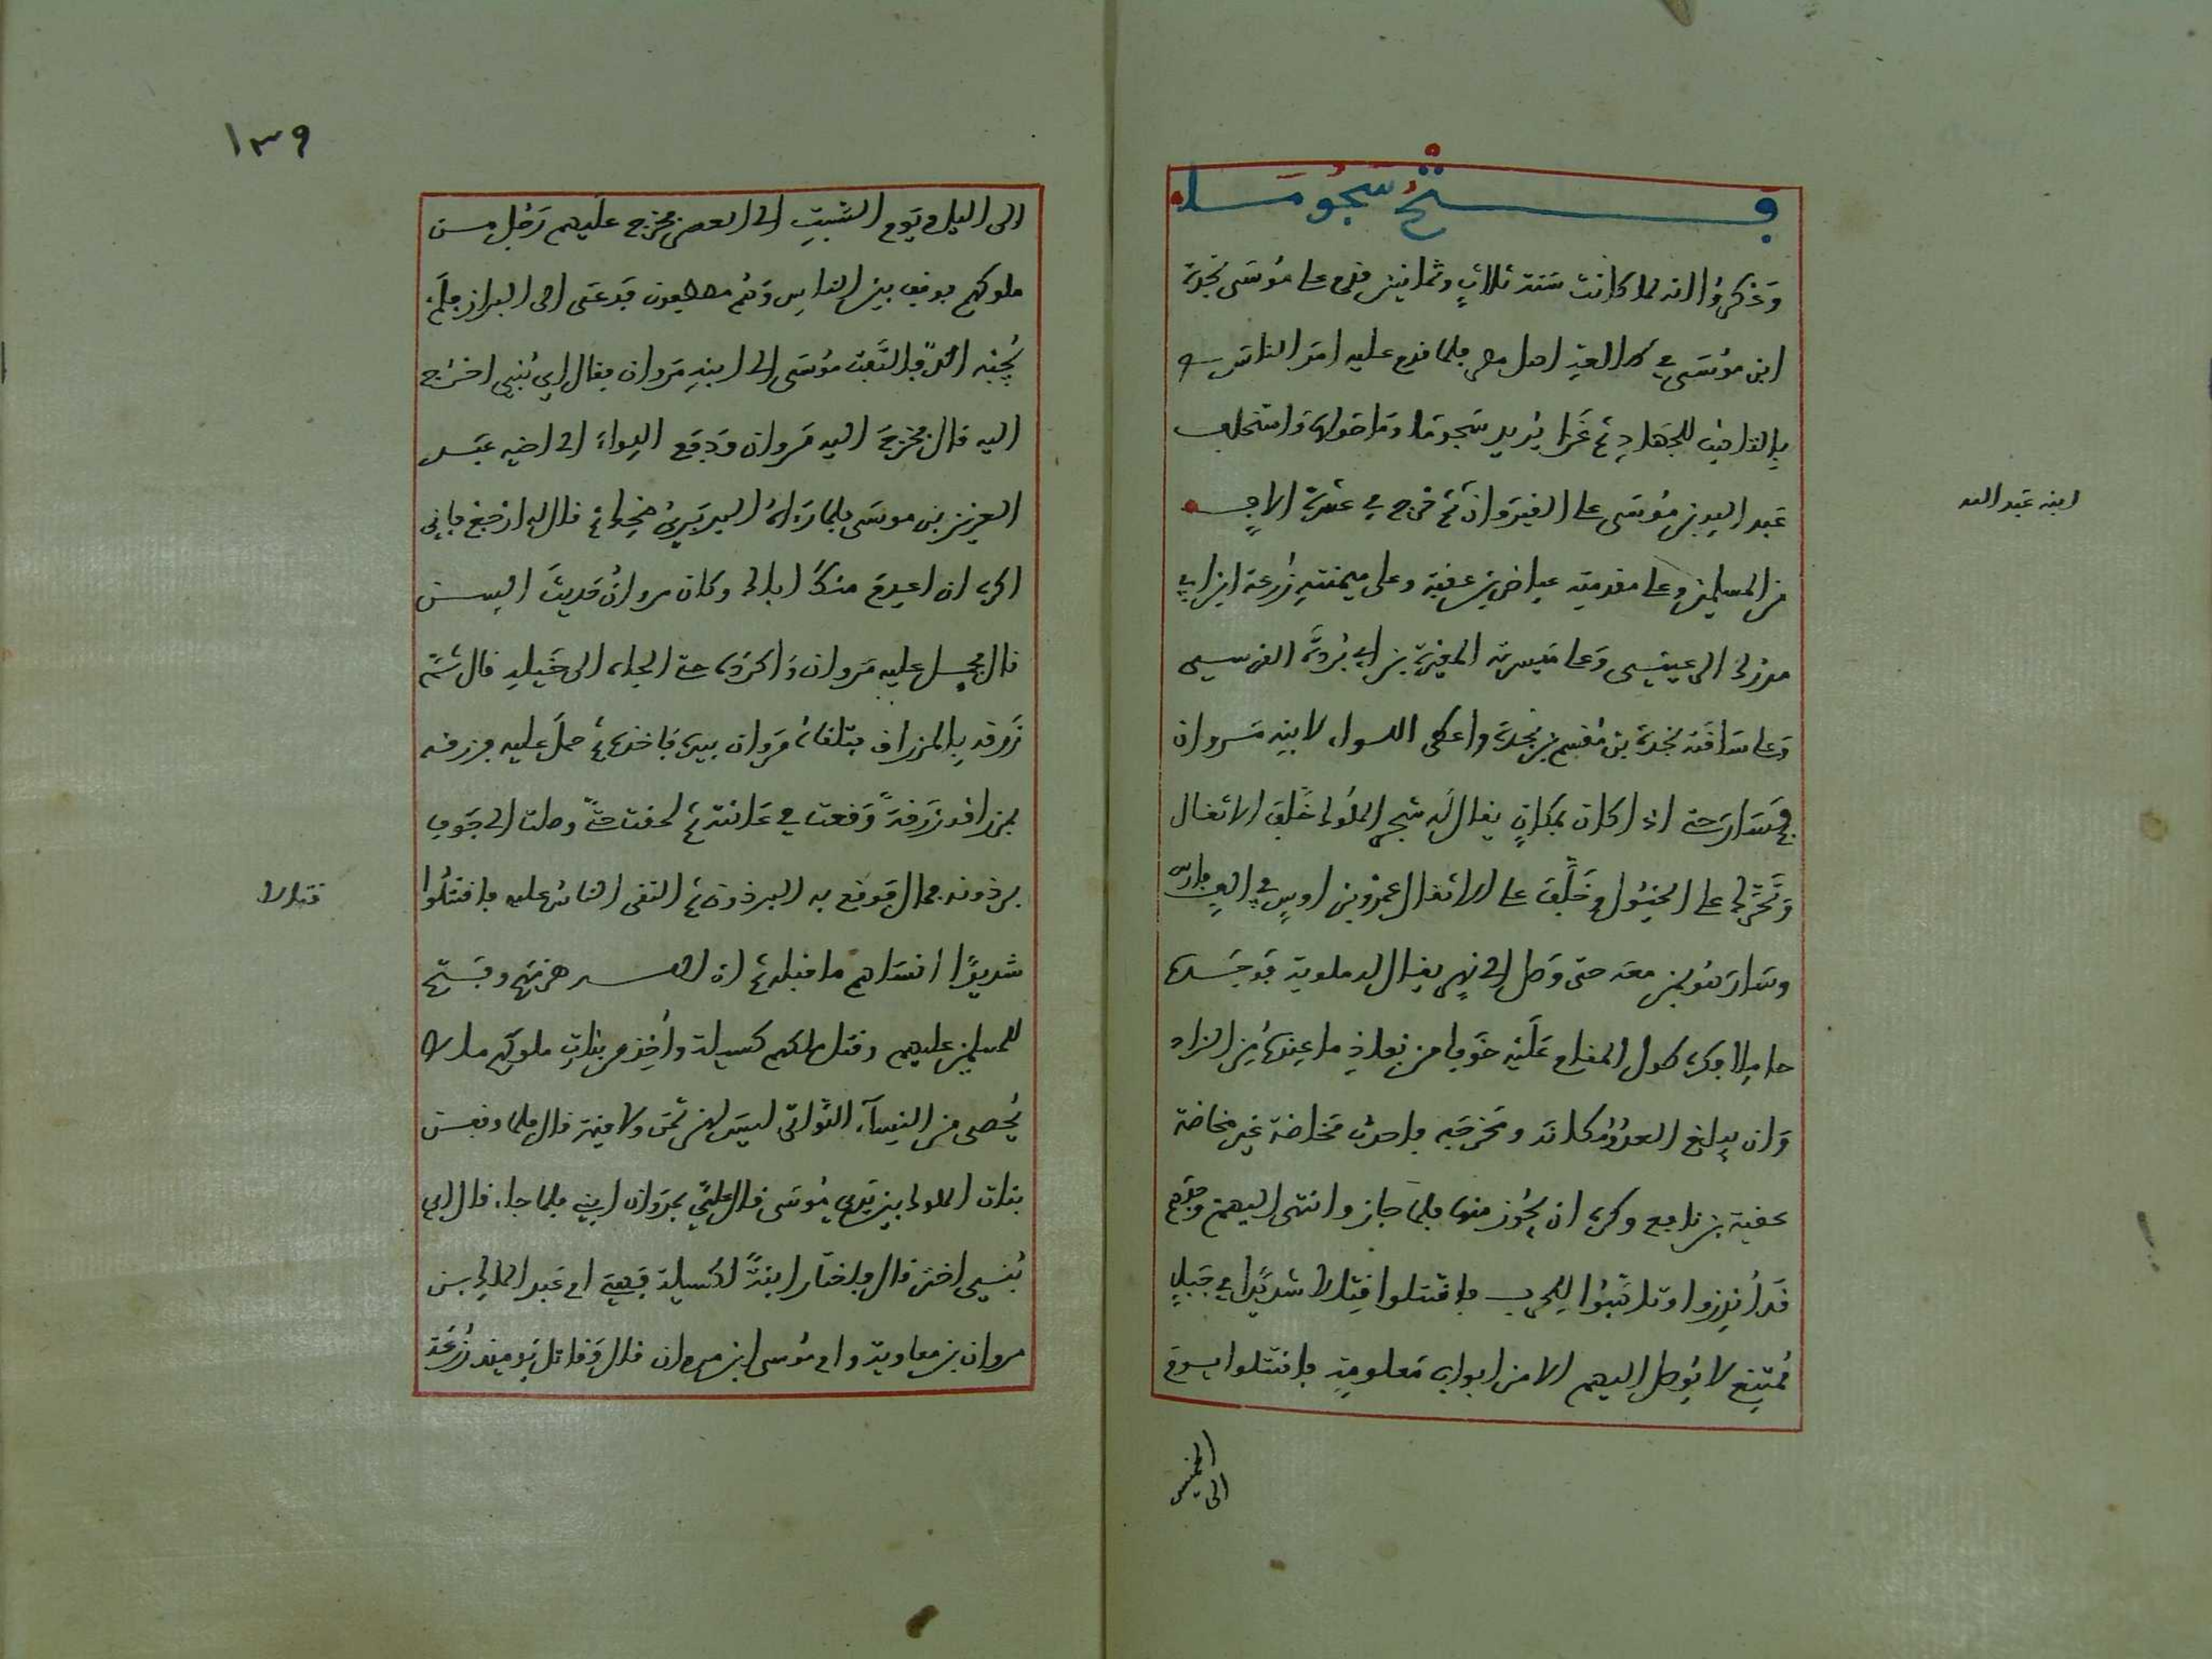 فتح سجوما
وذكروا انه لما كانت سنة ثلاث وثمانين قدم على موسى نجدة
ابن موسى في طالعة اهل مصر فلما قدم عليه امر الناس
بالتأهب للجهاد ثم غزا يريد سجوما وما حولها واستخلف
عبد الله بن موسى على القيروان ثم خرج في عشرة الاف
ابنه عبد الله
من المسلمين وعلى مقدمته عياض بن عقبة وعلى ميمنته زرعة ابن ابي
مدرك وعلى ميسرته المغيرة بن ابي بردة القرشي
وعلى ساقته نجدة بن مقسم بن نجدة واعطى اللوا لابنه مروان
فسار حتى اذا كان بمكان يقال له سجن الملوك خلف الاثقال
وتجرد على الخيول وخلف على الاثقال عمرو بن اوس في الف فارس
وسار هو بمن معه حتى وصل الى نهر يقال له ملوية فوجده
حاملا فكره طول المقام عليه خوفا من نفاذ ما عنده من الزاد
وان يبلغ العدو مكانه ومخرجه فاحدث مخاضة غير مخاضة
عقبة بن نافع وكره ان يجوز منها فلما جاز وانتهى اليهم وجدهم
قد انذروا وتاهبوا للحرب فاقتتلوا قتالا شديدا في جبل
ممتنع لا يوصل اليهم الا من ابواب معلومة فاقتتلوا يوم
الخميس
الى
١٣٩
الى اليل ويوم السبت الى العصر فخرج عليهم رجل من
ملوكهم فوقف بين الناس وهم مصطفون فدعى الى البراز فلم
يجبه احد فالتفت موسى الى ابنه مروان فقال اي بني اخرج
اليه قال فخرج اليه مروان ودفع اللواء الى اخيه عبد
العزيز بن موسى فلما رءاه البربري ضحك ثم قال له ارجع فاني
اكره ان اعدم منك اباك وكان مروان حديث السن
قال فحمل عليه مروان فاكرده حتى الجاه الى خيله قال ثم
زرقه بالمزراق فتلقاه مروان بيده فاخذه ثم حمل عليه فزرقه
بمزراقه زرقة وقعت في عانته ثم لحقت حتى وصلت الى جوف
برذونه فمال فوقع به البرذون ثم التقى الناس عليه فاقتتلوا
قتالا
شديدا انساهم ما قبله ثم ان الله هزمهم وفتح
للمسلمين عليهم وقتل ملكهم كسيلة واخذ من بنات ملوكهم ما لا
يحصى من النساء اللواتي ليس لهن ثمن ولا قيمة قال فلما وقفن
بنات الملوك بين يدي موسى قال علي بمروان ابني فلما جاء قال اي
بني اختر قال فاختار ابنة لكسيلة فهي ام عبد الملك بن
مروان بن معاوية وام موسى ابن مروان قال وقاتل يومئذ زرعة